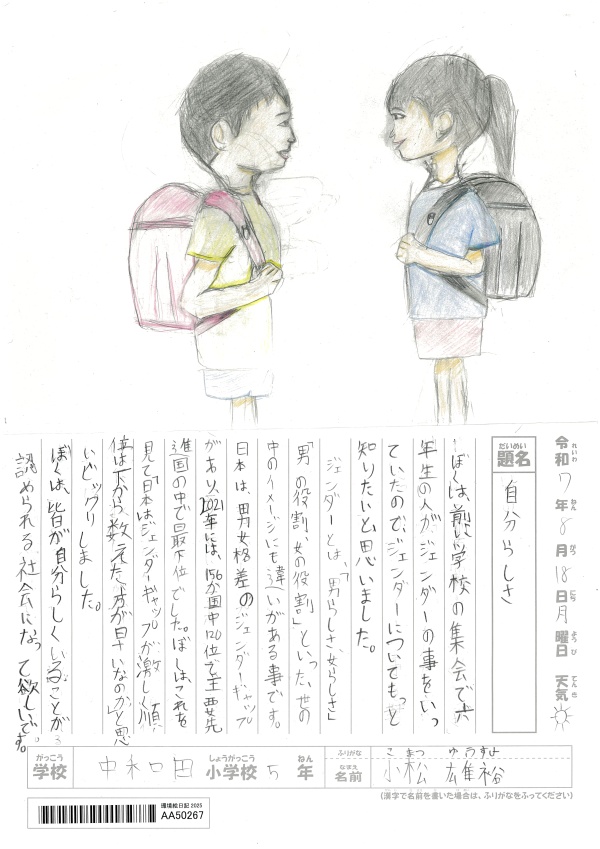 令和7年8月18日月曜日 天気
れいわ ねん がつ にち ようび てんき
だいめい
題名 自分らしさ
ぼくは、前に学校の集会で六
年生の人がジェンダーの事をいっ
ていたので、ジェンダーについてもっと
知りたいと思いました。
ジェンダーとは、「男らしさ、女らしさ」
「男の役割、女の役割」といった、世の
中のイメージにも違いがある事です。
日本は、男女格差のジェンダーギャップ
があり、2021年には、156か国中120位で主要先
進国の中で最下位でした。ぼくはこれを
見て「日本はジェンダーギャップが激しく順
位は下から数えた方が早いなのか」と思
いビックリしました。
ぼくは、皆が自分らしくいることが
認められる社会になって欲しいです。
がっこう しょうがっこう ねん
学校 中和田 小学校 5 年
ふりがな こまつ ゆうすけ
なまえ
名前 小松 雄裕
(漢字で名前を書いた場合は、ふりがなをふってください)
環境絵日記 2025
AA50267